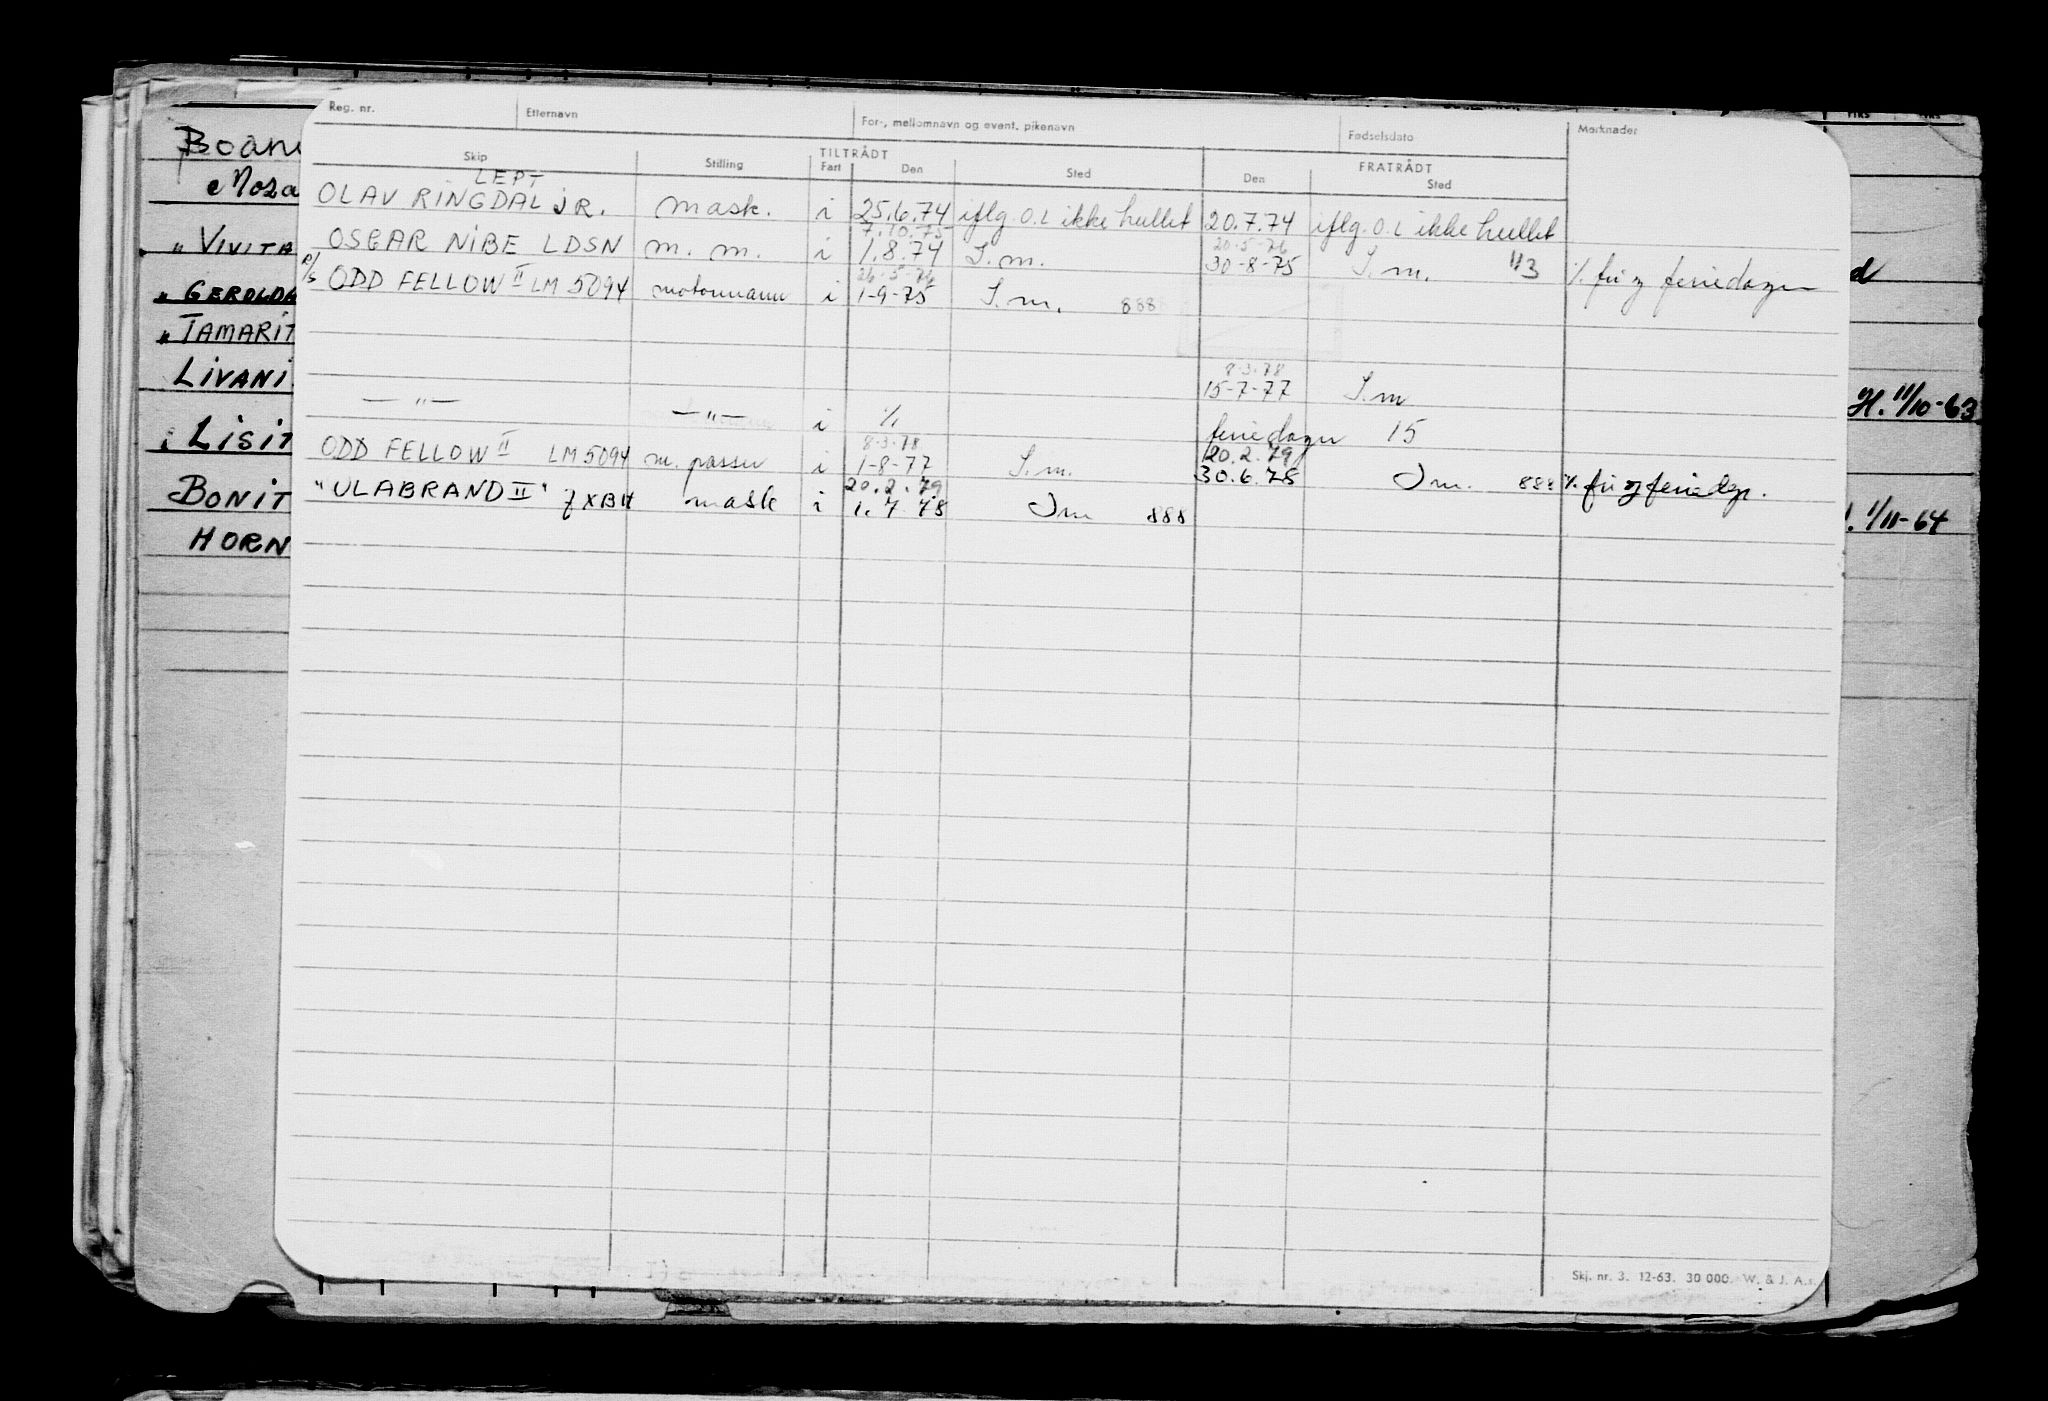 Reg. nr. Etternavn For-, mellomnavn og event. pikenavn Fødselsdato Merknader
TILTRÅDT FRATRÅDT
Skip Stilling Fart Den Sted Den Sted
LEPT
OLAV RINGDAL JR. mask. i 25.6.74 iflg. O.L ikke hullet 20.7.74 iflg. O.L ikke hullet
7.10.75 20-5-76
OSCAR NIBE LDSN m. m. i 1.8.74 S.m. 30-8-75 S.m. 113 %. fri og feriedager
26-5-76
R/S ODD FELLOW II LM 5094 motormann i 1-9-75 S.m. 888
8-3-78
15-7-77 S.m
— " — — " — i % feriedager 15
8-3-78 20.2.79
ODD FELLOW II LM 5094 m. passer i 1-8-77 S.m. 30.6.78 Sm. 888 %. fri og feriedgr.
20.2.79
"ULABRAND II" JXBH mask i 1.7 78 Sm 888
Skj. nr. 3. 12-63. 30 000. W. & J. A.s.
BOAN
" VIVITA
" GEROLDA
" TAMARIT
LIVANI
" LISIT
BONIT
HORN
d
H. 11/10-63
1/11-64